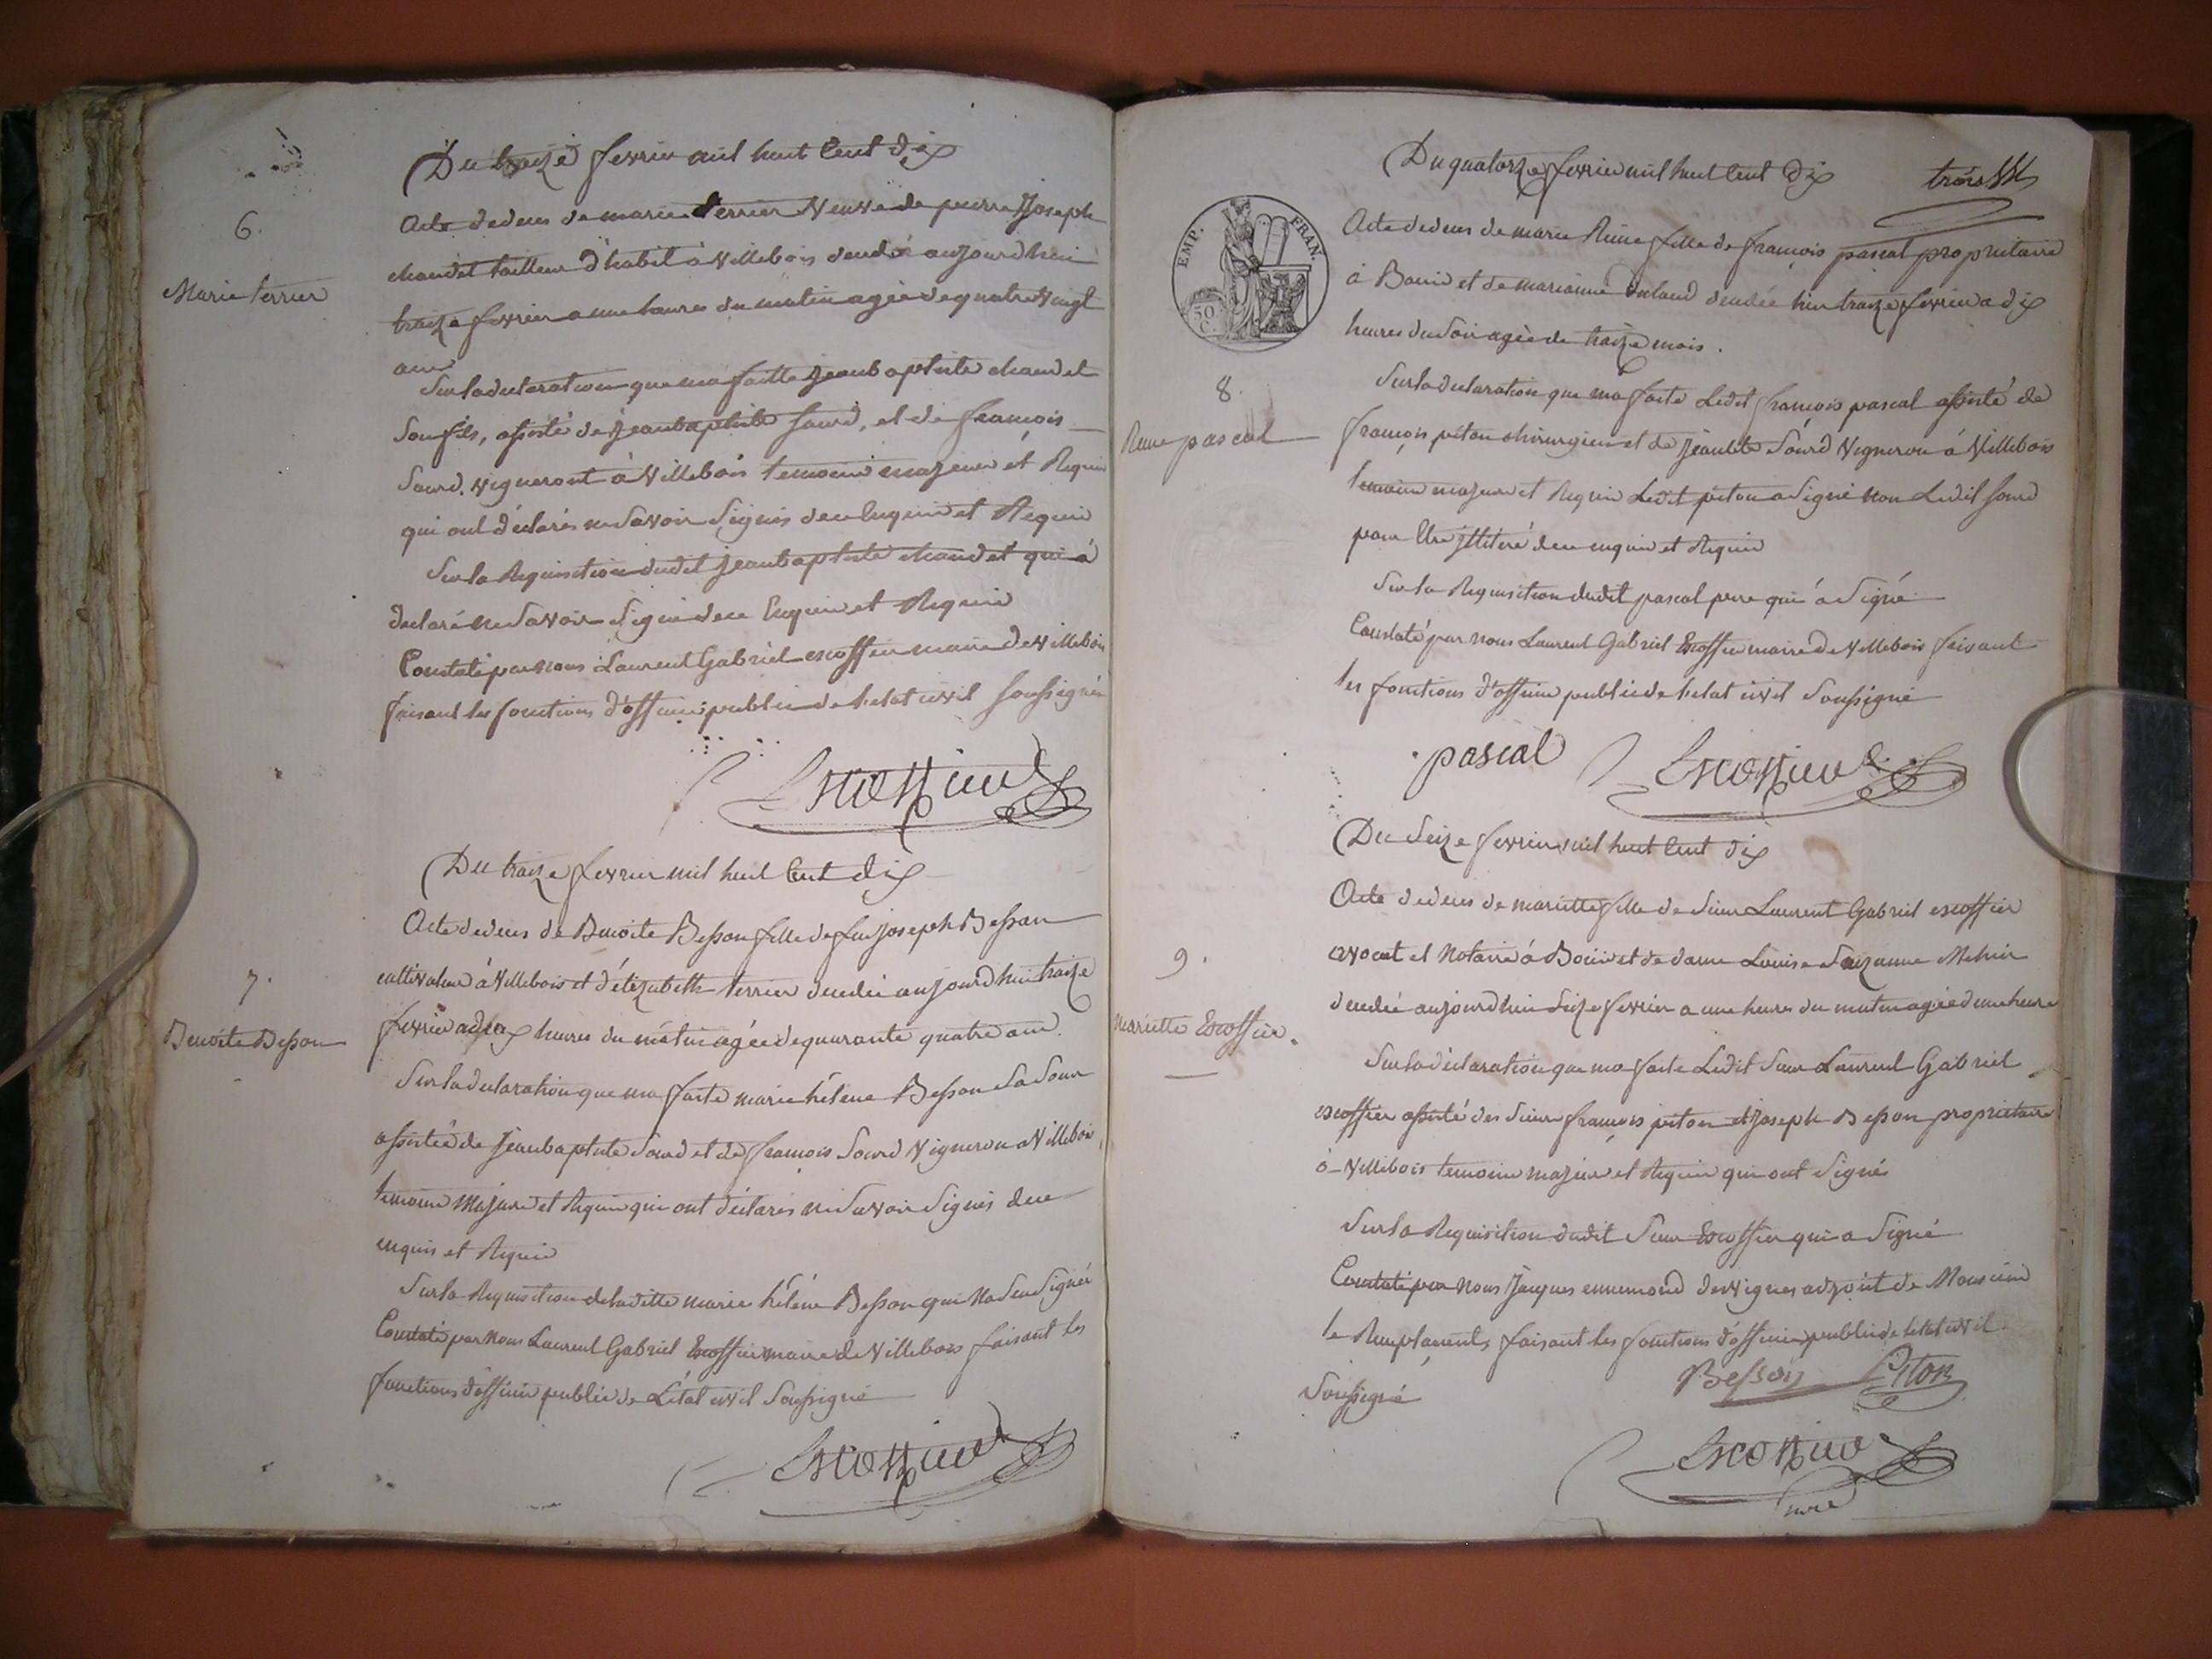 Du traize fevrier mil huit Cent dix
6.
Marie terrier
Acte de deces de marie terrier Veuve de pierre Joseph
chaudet tailleur d'habit à Villebois decedé aujourdhui
traize fevrier a une heures du matin agée de quatre Vingt
ans
Sur la declaration que ma faitte Jean baptiste chaudet
Son fils, assisté de Jean baptiste Sourd, et de françois
Sourd. vigneront à Villebois temoins majeurs et Requis
qui ont déclarés ne Savoir Signés de ce Enquis et Requis
Sur la Requisition dudit Jean baptiste chaudet qui à
declaré ne Savoir Signé de ce Enquis et Requis
Constaté par nous Laurent Gabriel escoffier maire de Villebois
faisant les fonctions d'officier public de l'etat civil Soussigné
Escoffier
Du traize fevrier mil huit Cent dix
7.
Benoite Besson
Acte de deces de Benoite Besson fille de feu joseph Besson
cultivateur à Villebois et d'élizabeth terrier decedée aujourdhui traize
fevrier a dix heures du matin agée de quarante quatre ans.
Sur la declaration que ma faite marie héléne Besson Sa Sœur
assistée de Jean baptiste Sourd et de françois Sourd Vigneron a Villebois,
temoins Majeurs et Requis qui ont déclarés ne Savoir Signés de ce
enquis et Requis
Sur la Requisition de laditte marie héléne Besson qui Na Seu Signée
Constaté par Nous Laurent Gabriel Escoffier maire de Villebois faisant les
fonctions d'officier public de L'état civil Soussigné
Escoffier
Du quatorze fevrier mil huit Cent Dix
trois
EMP. FRAN.
50 C.
8.
Reine pascal
Acte de deces de marie Reine fille de françois pascal propriétaire
à Bouis et de marianne decedée hier traize fevrier a dix
heures du Soir agée de traize mois.
Sur la declaration que ma faite Ledit françois pascal assisté de
françois piton chirurgien et de Jean bte Sourd Vigneron à Villebois
temoins majeurs et Requis Ledit piton a Signé non Ledit Sourd
pour Etre illiteré de ce enquis et Requis
Sur la Requisition dudit pascal pere qui à Signé
Constaté par nous Laurent Gabriel Escoffier maire de Villebois faisant
les fonctions d'officier public de l'etat civil Soussigné
pascal Escoffier
Du Seize fevrier mil huit Cent dix
9.
mariette Escoffier.
Acte de deces de mariette fille de Sieur Laurent Gabriel escoffier
avocat et Notaire à Bouis et de dame Louise Suzanne
decedée aujourdhui Seize fevrier a une heures du matin agée d'une heure
Sur la déclaration que ma faite Ledit Sieur Laurent Gabriel
escoffier assisté des Sieur françois piton et joseph Besson propriétaire
à Villebois temoins majeurs et Requis qui ont Signé
Sur la Requisition dudit Sieur Escoffier qui a Signé
Constaté par Nous Jacques ennemond desvignes adjoint de Monsieur
le faisant les fonctions d'officier public de l'etat civil
Soussigné
Besson Piton
Escoffier